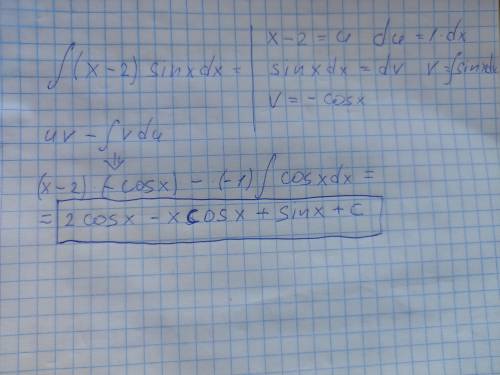 ∫(x-2) sinxdx =
x-2 = u   du = 1·dx
sinxdx = dv   v=∫sinxdx
v = -cosx
uv - ∫vdu
⇓
(x-2)·(-cosx) - (-1)∫cosxdx =
= 2cosx - xcosx + sinx + c